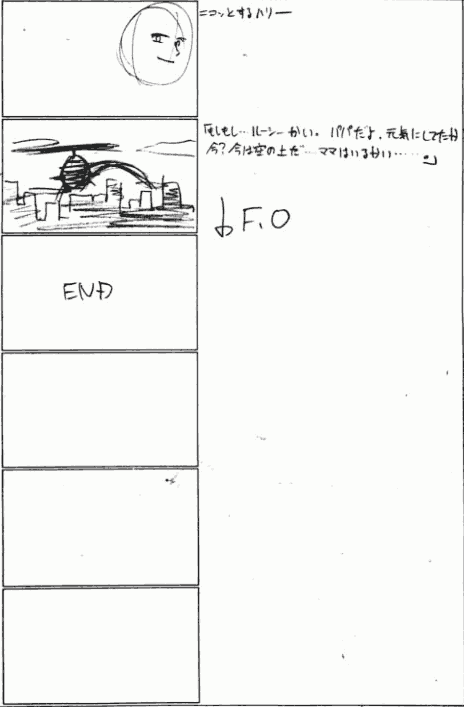 ニコッとするハリー
「もしもし…ルーシーかい。パパだよ。元気にしてたか
今?今は空の上だ…ママはいるかい……」
F.O
END